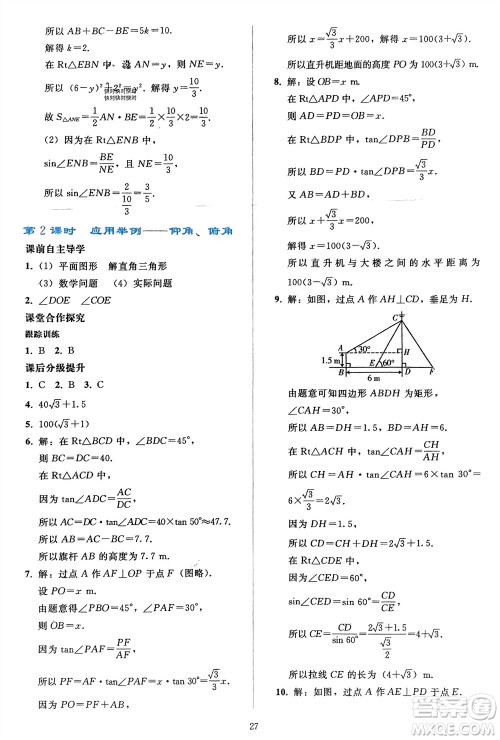 所以 AB+AC-BC=5k=10.
解得 k=2.
在 Rt△EBN 中，设 AN=y，
所以 (6-y)²+2²=y²，解得 y=10/3.
快对快对快对
快对快对快对
故 S△ANE=1/2 AN·BE=1/2×10/3×2=10/3.
(2) 因为在 Rt△ENB 中，
sin∠ENB=BE/NE，且 NE=10/3，
所以 sin∠ENB=2/(10/3)=3/5.
第 2 课时 应用举例——仰角、俯角
课前自主导学
1. (1) 平面图形 解直角三角形
(3) 数学问题 (4) 实际问题
2. ∠DOE ∠COE
课堂合作探究
跟踪训练
1. B 2. B
课后分级提升
1. C 2. B 3. C
4. 40√3+1.5
5. 100(√3+1)
6. 解：在 Rt△BCD 中，∠BDC=45°，
则 BC=DC=40.
在 Rt△ACD 中，
因为 tan∠ADC=AC/DC，
所以 AC=DC·tan∠ADC=40×tan 50°≈47.7.
所以 AB=AC-BC=7.7.
所以旗杆 AB 的高度为 7.7 m.
7. 解：过点 A 作 AF⊥OP 于点 F (图略).
设 PO=x m.
由题意得∠PBO=45°，∠PAF=30°，
所以 OB=x.
在 Rt△APF 中，
因为 tan∠PAF=PF/AF，
所以 PF=AF·tan∠PAF=√3/3 x.
因为 PO=PF+OF，
所以 x=√3/3 x+200，解得 x=100(3+√3).
所以直升机距地面的高度 PO 为 100(3+√3) m.
8. 解：设 OB=x m.
在 Rt△APD 中，∠APD=45°，
则 AD=PD=OB=x m.
在 Rt△BPD 中，tan∠DPB=BD/PD，
所以 BD=PD·tan∠DPB=√3/3 x.
所以 x+√3/3 x=200.
解得 x=100(3-√3).
所以直升机与大楼之间的水平距离为 100(3-√3) m.
9. 解：如图，过点 A 作 AH⊥CD，垂足为 H.
C
A 30° H
1.5 m 60°
B E D
6 m
由题意可知四边形 ABDH 为矩形，
∠CAH=30°.
所以 AB=DH=1.5，BD=AH=6.
在 Rt△ACH 中，tan∠CAH=CH/AH，
所以 CH=AH·tan∠CAH=6×tan 30°=
6×√3/3=2√3.
因为 DH=1.5，
所以 CD=CH+DH=2√3+1.5.
在 Rt△CDE 中，
因为∠CED=60°，
sin∠CED=sin 60°=CD/CE，
所以 CE=CD/sin 60°=(2√3+1.5)/(√3/2)=4+√3.
所以拉线 CE 的长为 (4+√3) m.
10. 解：如图，过点 A 作 AE⊥PD 于点 E.
27